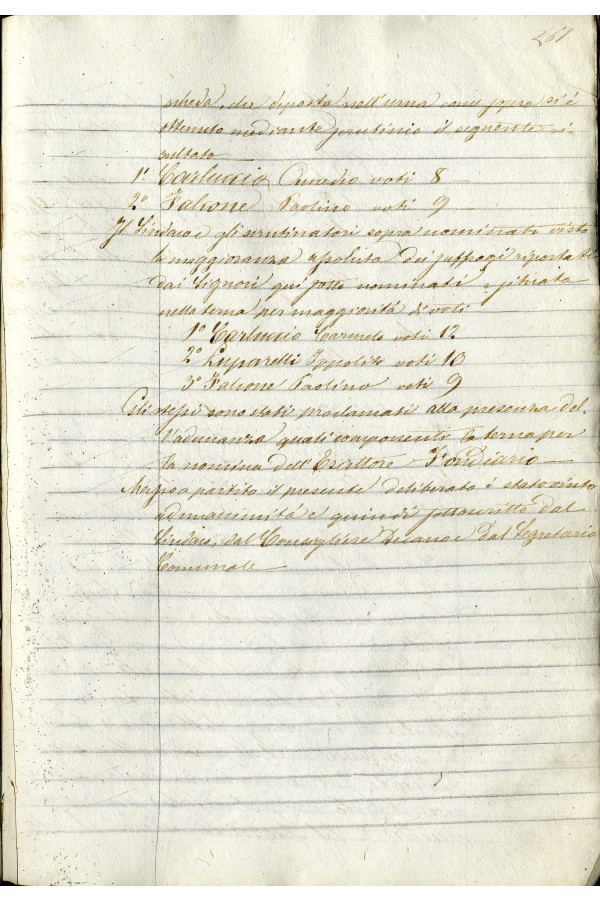 261
scheda, che deposta nell'urna come sopra si è
ottenuto mediante scrutinio il seguente ri-
sultato
1° Carluccio Amedeo voti 8
2° Falcone Paolino voti 9
Il Sindaco e gli scrutinatori sopra nominati visto
la maggioranza assoluta dei suffragi riportati
dai Signori qui sotto nominati, situata
nella terna per maggiorità di voti
1° Carluccio Carmelo voti 12
2° Luparelli Ippolito voti 10
3° Falcone Paolino voti 9
Gli stessi sono stati proclamati alla presenza del-
l'adunanza quali componenti la terna per
la nomina dell'Esattore Fondiario
Messo a partito il presente deliberato è stato vinto
ad unanimità e quindi sottoscritto dal
Sindaco, dal Consigliere Decano e dal Segretario
Comunale